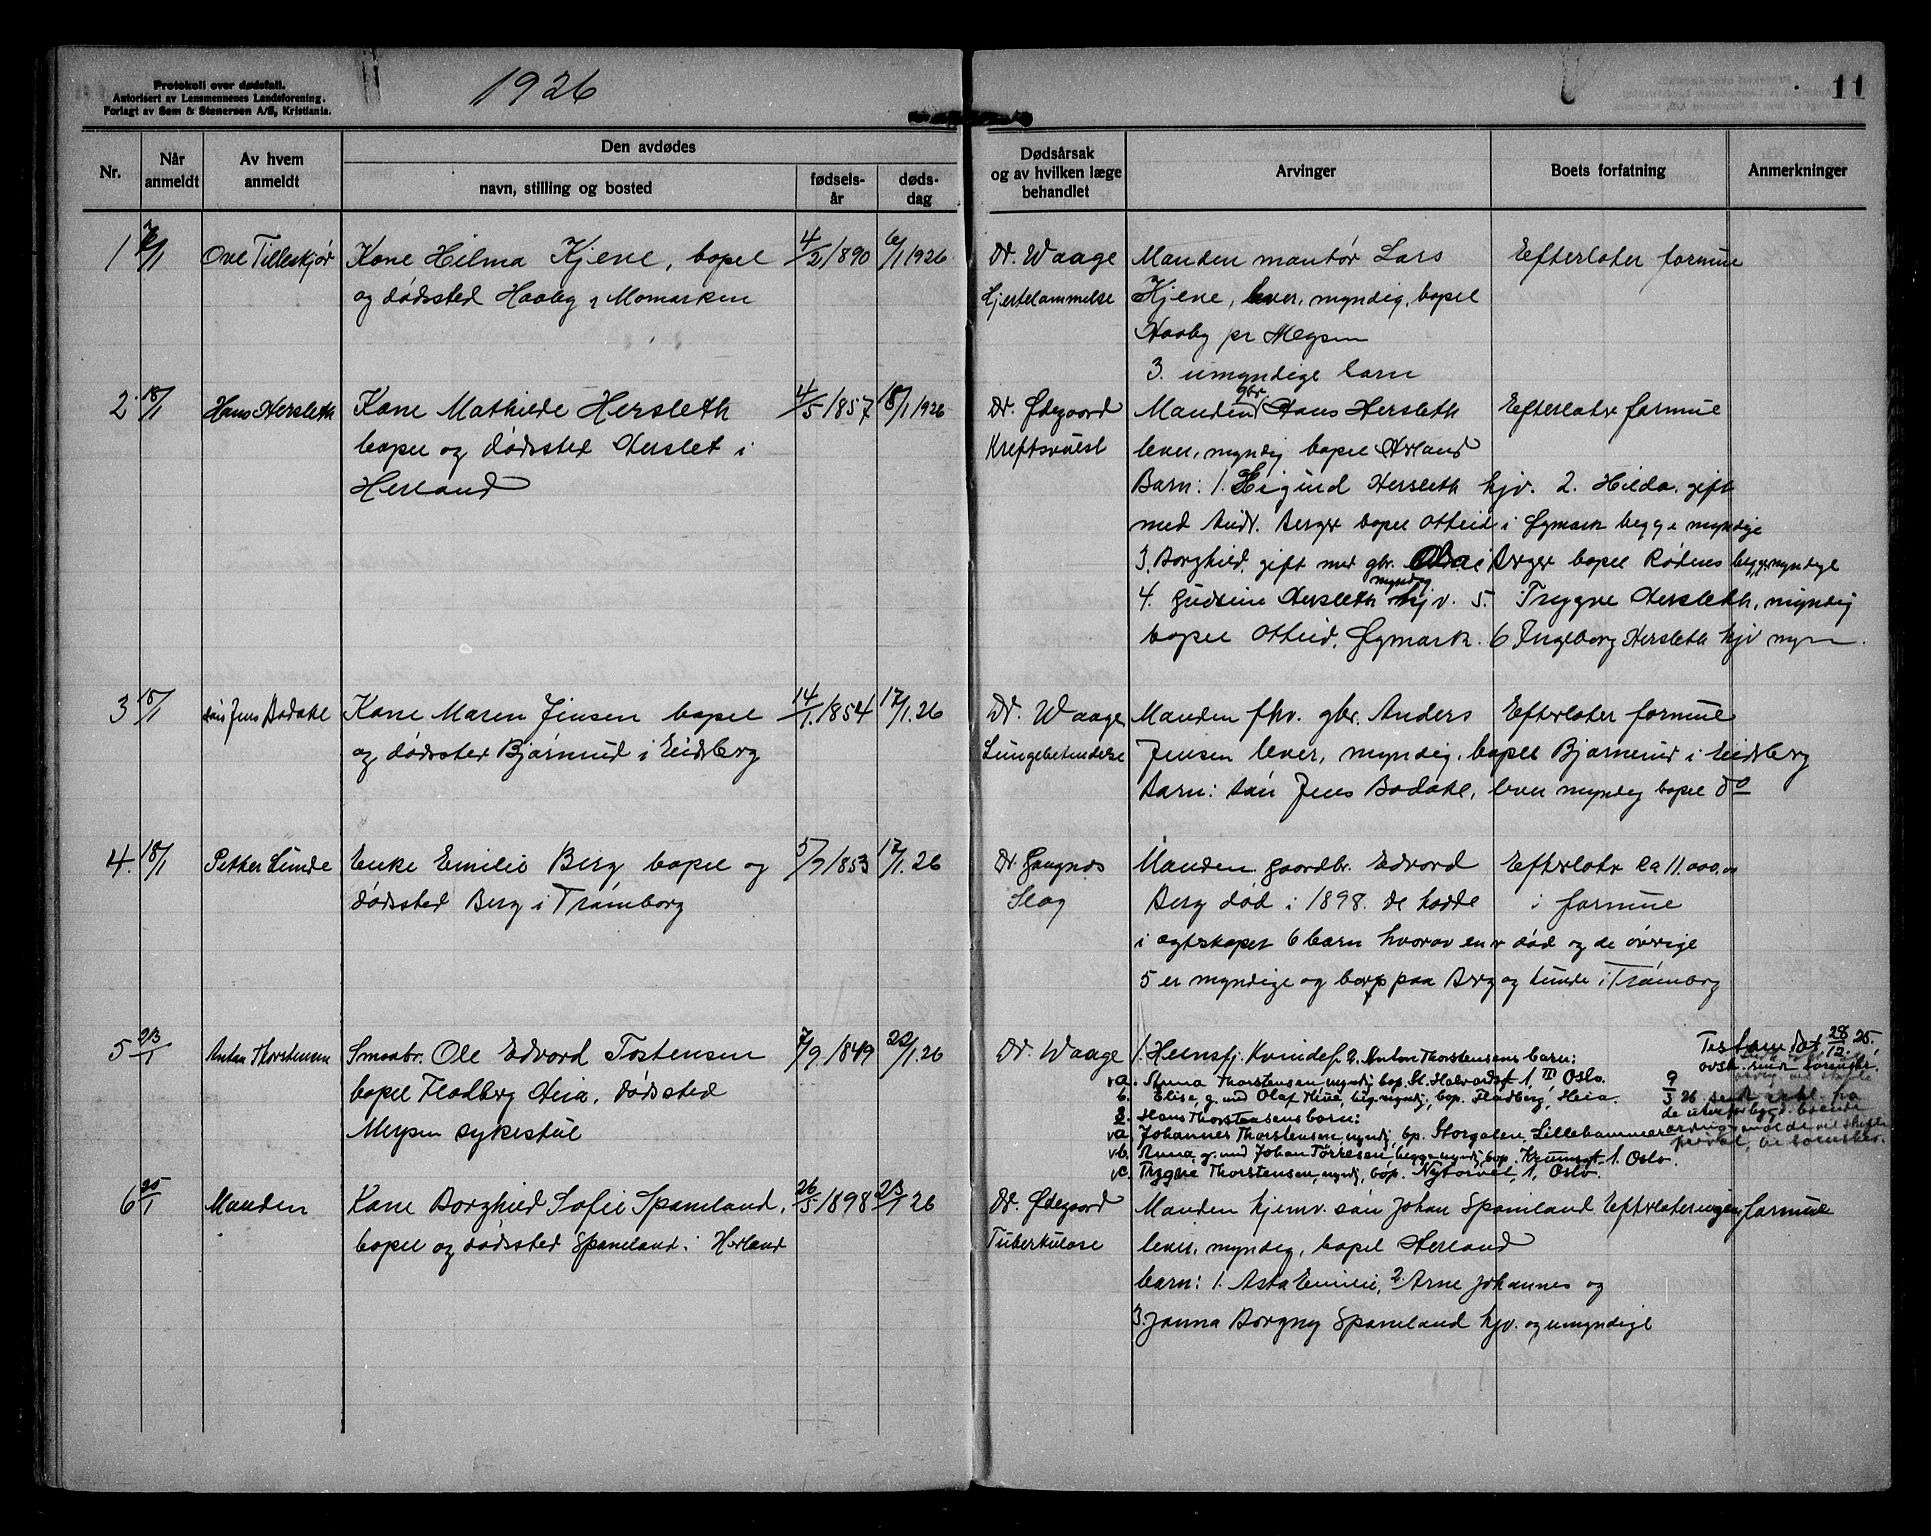 Protokoll over dødsfall.
Autorisert av Lensmennenes Landsforening.
Forlagt av Sem & Stenersen A/S, Kristiania.
1926
11
Nr.
Når anmeldt
Av hvem anmeldt
Den avdødes
navn, stilling og bosted
fødsels-år
døds-dag
Dødsårsak og av hvilken læge behandlet
Arvinger
Boets forfatning
Anmerkninger
1 7/1 Ove Tilleskjør Kone Hilma Kjene, bopel 4/2 1890 6/1 1926 Dr. Waage Manden mantør Lars Efterlater formue
og dødssted Haaby, Momarken Hjertelammelse Kjene, lever, myndig, bopel
Haaby pr Mysen
3. umyndige barn
2 18/1 Hans Hersleth Kone Mathilde Hersleth 4/5 1857 18/1 1926 Dr. Ødegaard Manden gbr. Hans Hersleth Efterlater formue
bopel og dødssted Herslet i Kreftsvulst lever, myndig bopel Herland
Herland Barn: 1. Sigurd Hersleth hjv. 2. Hilda, gift
med Andr. Berger bopel Otteid i Øymark begge myndige
3. Borghild, gift med gbr. Berger bopel Rødenes begge myndige
4. Gudrine Hersleth myndig hjv. 5. Trygve Hersleth, myndig
bopel Otteid, Øymark. 6 Ingeborg Hersleth hjv myn
3 18/1 søn Jens Bodahl Kone Maren Jensen bopel 14/1. 1854 17/1. 26 Dr. Waage Manden fhv. gbr. Anders Efterlater formue
og dødssted Bjørnerud i Eidsberg Lungebetendelse Jensen lever, myndig, bopel Bjørnerud i Eidsberg
Barn: søn Jens Bodahl, lever myndig bopel do
4. 18/1 Petter Lunde Enke Emilie Berg bopel og 5/7 1853 17/1. 26 Dr. Gaugnæs Manden gaardbr. Edvard Efterlater ca 11.000,00
dødssted Berg i Trømborg Slag Berg død i 1898. de hadde i formue
i egteskapet 6 barn hvorav en er død og de øvrige
5 er myndige og bor paa Berg og Lunde i Trømborg
5 23/1 Anton Thorstensen Smaabr. Ole Edvard Tostensen 7/9 1849 22/1. 26 Dr. Waage 1. Heinsfj. Kvindef. 2. Anton Thorstensens barn: Testam. dat 28/12. 25.
bopel Fladberg Heia, dødssted a. Anna Thorstensen, myndig bop. St. Halvardsgt 1, III Oslo.
Mysen sykestue b. Elise, g. med Olaf Hiue, beg. myndig, bop. Fladberg, Heia. 9/3 26
2. Hans Thorstensens barn:
a. Johannes Thorstensen, myndig, bp. Storgaten, Lillehammer
b. Anna g. med Johan Torkesen begge myndig bop. Krumsgt. 1. Oslo.
c. Trygve Thorstensen, myndig, bop. Nytorvet, 1, Oslo.
6 25/1 Manden Kone Borghild Sofie Spæneland, 26/5 1898 23/1 26 Dr. Ødegaard Manden hjemv. søn Johan Spæneland Efterlater ingen formue
bopel og dødssted Spæneland i Herland Tuberkulose lever, myndig, bopel Herland
barn: 1. Asta Emilie, 2. Arne Johannes og
3. Janna Borgny Spæneland hjv. og umyndige